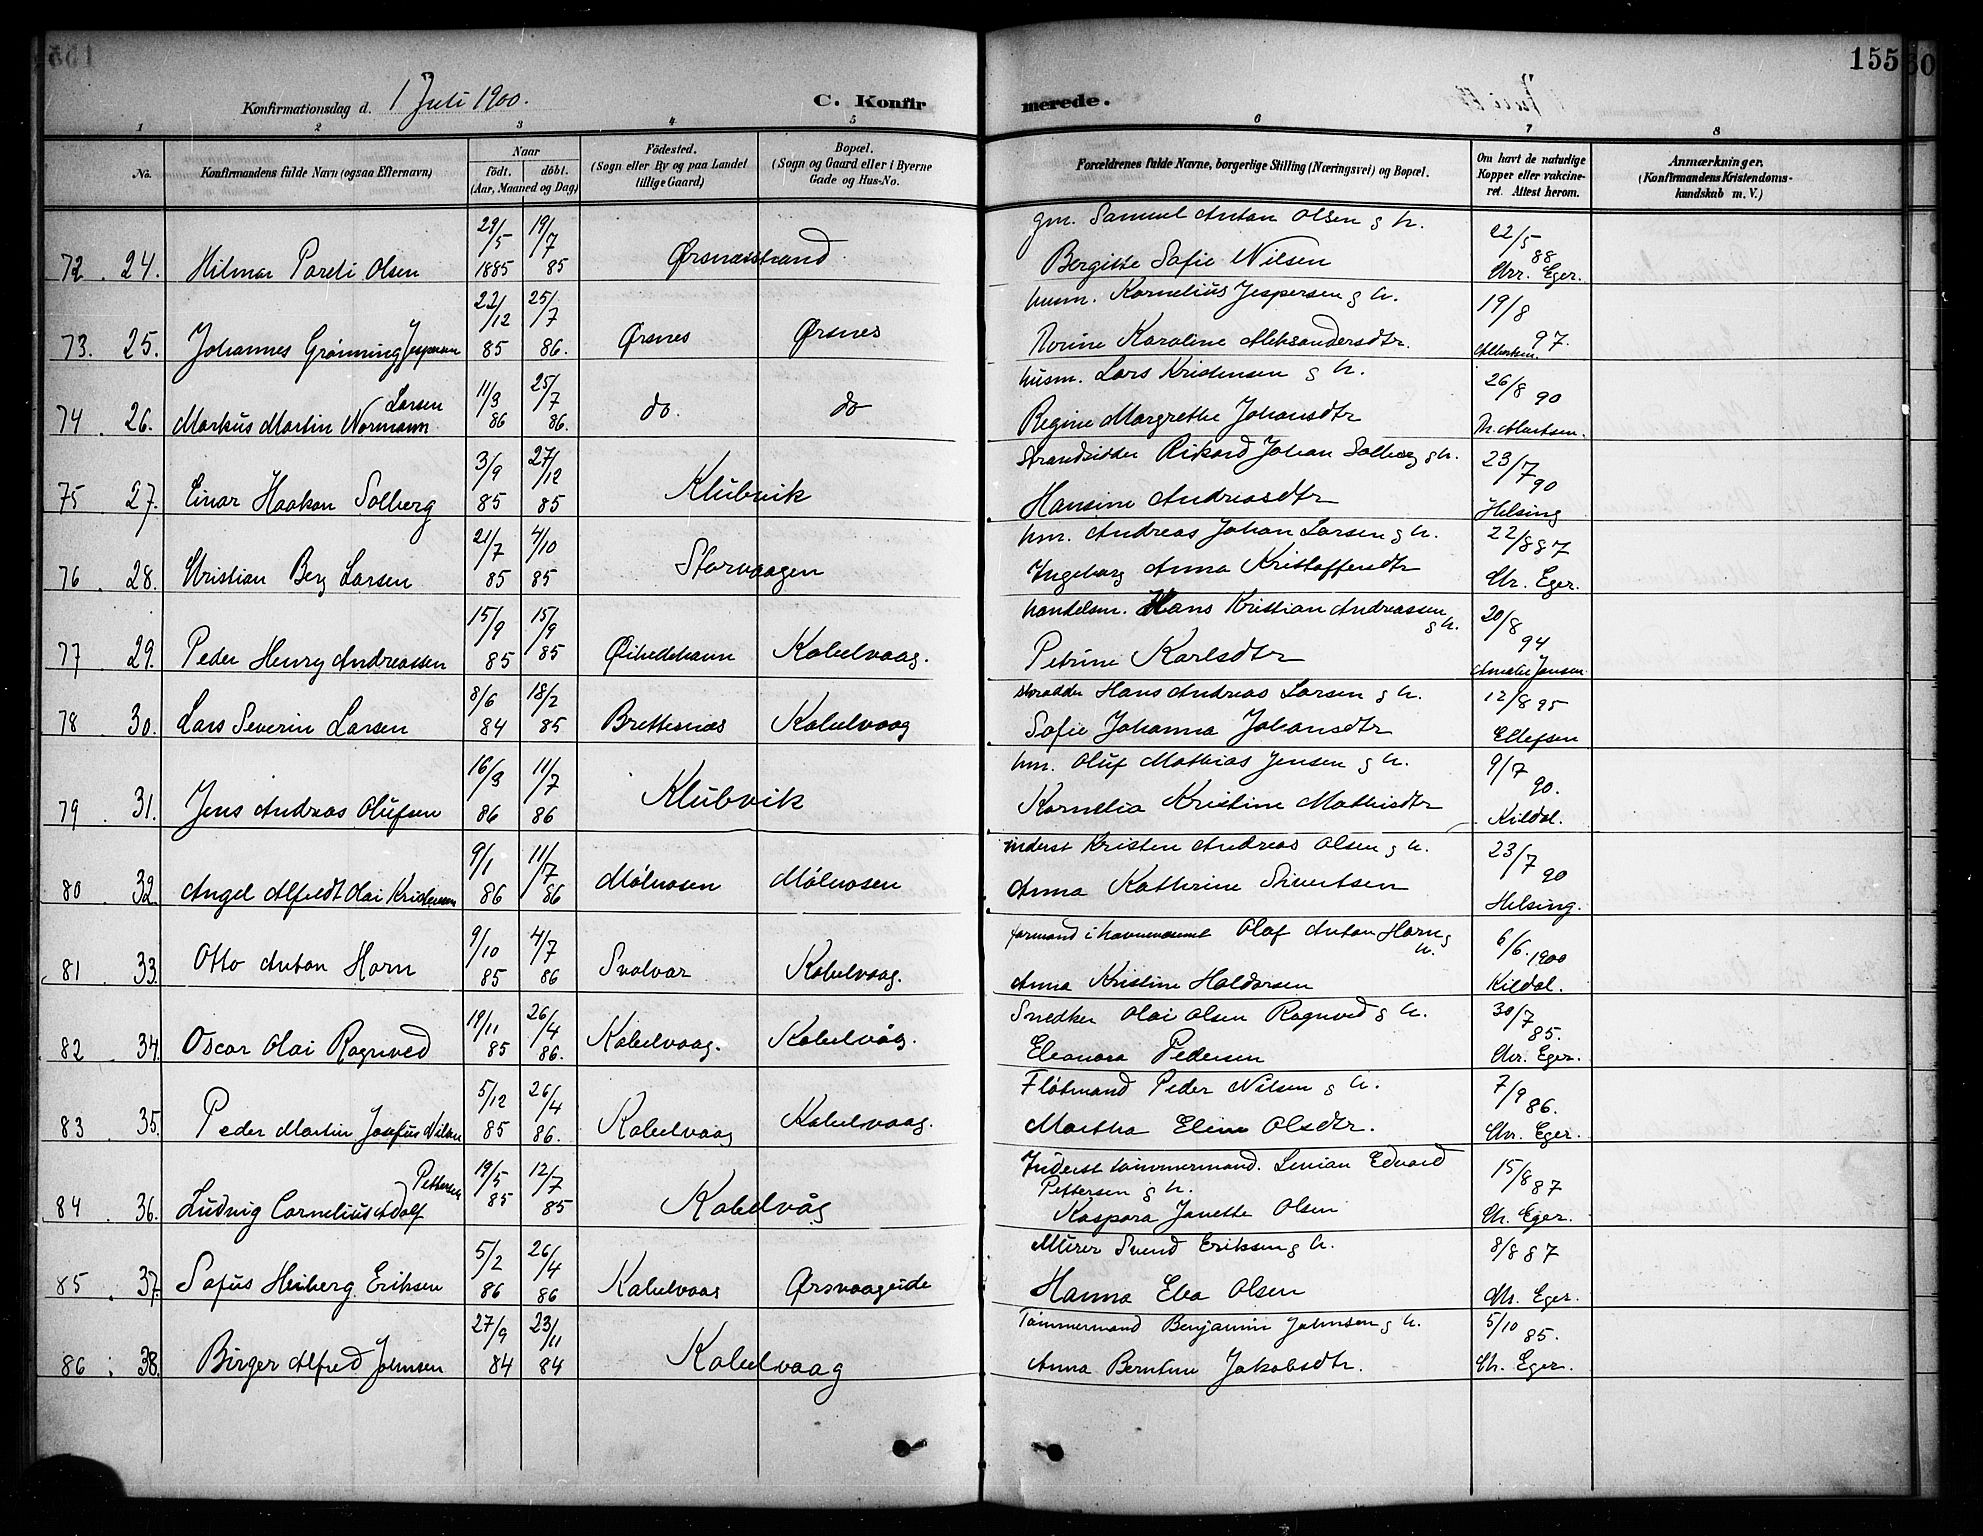 155
Konfirmationsdag d. 1 Juli 1900.
C. Konfir
merede.
1 2 3 4 5 6 7 8
No.
Konfirmandens fulde Navn (ogsaa Efternavn)
Naar
født. døbt.
(Aar, Maaned og Dag)
Fødested.
(Sogn eller By og paa Landet
tillige Gaard)
Bopæl.
(Sogn og Gaard eller i Byerne
Gade og Hus-No.
Forældrenes fulde Navne, borgerlige Stilling (Næringsvei) og Bopæl.
Om havt de naturlige
Kopper eller vakcine-
ret. Attest herom.
Anmærkninger.
(Konfirmandens Kristendoms-
kundskab m. V.)
29/5 19/7 gm. Samuel Anton Olsen g h. 22/5
72. 24. Hilmar Pareli Olsen 1885 85 Ørsnesstrand Bergitte Sofie Nilsen 88 Chr. Eger.
22/12 25/7 husm. Kornelius Jespersen g h. 19/8
73. 25. Johannes Grønning Jespersen 85 86. Ørsnes Ørsnes Norine Karoline Aleksandersdtr. 97. Albertsen.
Larsen 11/3 25/7 husm. Lars Kristensen g h. 26/8 90
74. 26. Markus Martin Normann 86 86. do. do Regine Margrethe Johansdtr M. Albertsen.
3/9 27/12 Strandsidder Rikard Johan Solberg g h. 23/7 90
75 27. Einar Haakon Solberg 85 85 Klubvik Hansine Andreasdtr Helsing
21/7 4/10 hm. Andreas Johan Larsen g h. 22/8 87
76. 28. Kristian Berg Larsen 85 85 Storvaagen Ingeborg Anna Kristoffersdtr Chr. Eger.
15/9 15/9 handelsm. Hans Kristian Andreassen g h. 20/8
77 29. Peder Henry Andreassen 85 85 Øihellehavn Kabelvaag. Petrine Karlsdtr 94 Amalie Jensen
8/6 18/2 skrædder Hans Andreas Larsen g h. 12/8 95
78 30. Lars Severin Larsen 84 85 Brettesnæs Kabelvaag Sofie Johanna Johansdtr Ellefsen
16/3 11/7 hm. Oluf Mathias Jensen g h. 9/7 90.
79. 31. Jens Andreas Olufsen 86 86 Klubvik Kornelia Kristine Mathisdtr Kildal.
9/1 11/7 inderst Kristen Andreas Olsen g h. 23/7 90
80. 32. Angel Alfeldt Olai Kristensen 86 86 Mølnosen Mølnosen Anna Kathrine Sivertsen Helsing.
9/10 4/7 formand i havnevæsenet Olaf Anton Horn g h. 6/6 1900
81. 33. Otto Anton Horn 85 86 Svolvær Kabelvaag. Anna Kristine Haldorsen Kildal.
19/11 26/4 Snedker Olai Olsen Rognved g h. 30/7 85.
82. 34. Oscar Olai Rognved 85 86. Kabelvaag. Kabelvåg. Eleonora Pedersen Chr. Eger.
5/12 26/4 Fløtmand Peder Nilsen g h. 7/9 86.
83. 35. Peder Martin Josefus Nilsen 85 86. Kabelvaag Kabelvaag. Martha Eline Olsdtr. Chr. Eger.
Pettersen 19/5 12/7 Inderst tømmermand. Edvard 15/8 87
Pettersen g h.
84. 36. Ludvig Cornelius Adolf 85 85 Kabelvåg Kaspara Janette Olsen Ch. Eger.
5/2 26/4 Murer Svend Eriksen g h. 8/8 87
85. 37. Sofus Heiberg Eriksen 86 86 Kabelvaag Ørsvaageide Hanna Elea Olsen Chr. Eger.
27/9 23/11 Tømmermand Benjamin Johnsen g h. 5/10 85.
86. 38. Birger Alfred Johnsen 84 84 Kabelvaag Anna Berntine Jakobsdtr. Ch. Eger.